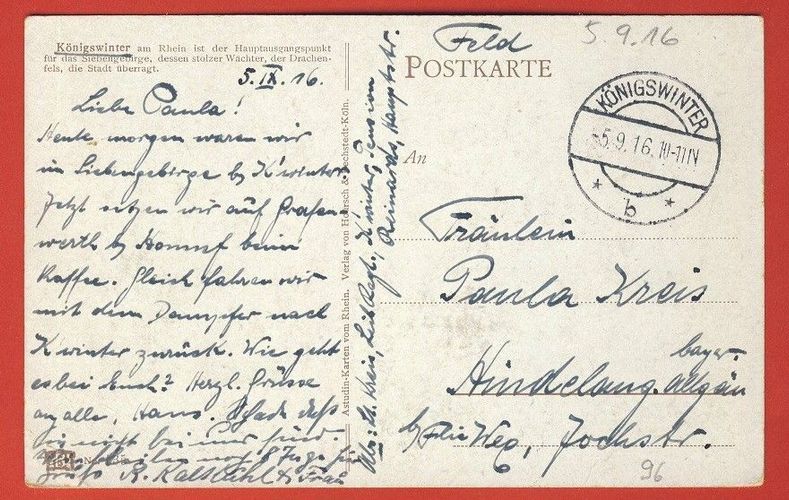 Königswinter am Rhein ist der Hauptausgangspunkt
für das Siebengebirge, dessen stolzer Wächter, der Drachen-
fels, die Stadt überragt.
5.IX.16.
Liebe Paula!
Heute morgen waren wir
im Siebengebirge b/ K'winter.
Jetzt sitzen wir auf Grafen
werth b/ Honnef beim
Kaffee. Gleich fahren wir
mit dem Dampfer nach
K'winter zurück. Wie geht
es bei Euch? Herzl. Grüsse
an alle, Hans. Schade daß
nicht bei uns
R. & Frau
Astudin-Karten vom Rhein. Verlag von Hoursch & Bechstedt-Köln.
Abs: Lt. Kreis, Leib Regt., K'winter, Pension
Reinards, Hauptstr.
Feld
POSTKARTE
5.9.16
KÖNIGSWINTER
-5.9.16.10-11N
* b *
An
Fräulein
Paula Kreis
bayer.
Hindelang. Allgäu
b/ Weg, Jochstr.
96